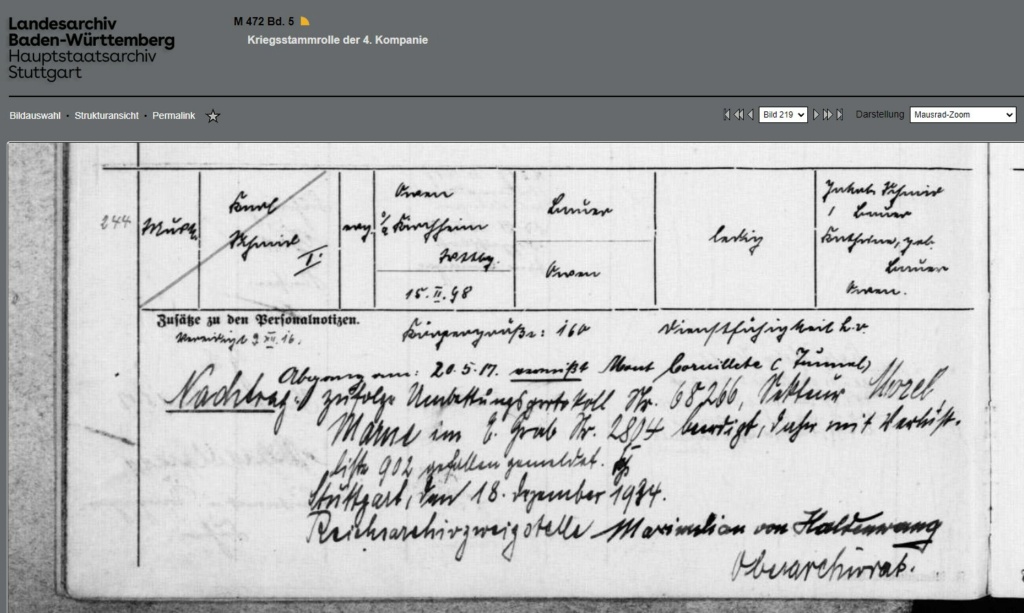 Landesarchiv
Baden-Württemberg
Hauptstaatsarchiv
Stuttgart
M 472 Bd. 5
Kriegsstammrolle der 4. Kompanie
Bildauswahl · Strukturansicht · Permalink
Bild 219 Darstellung Mausrad-Zoom
244 Musk. Karl Schmid I. evg. Owen Kirchheim Wttbg. 15.II.98 Bauer Owen ledig Jakob Schmid, Bauer Katharine, geb. Bauer Owen.
Zusätze zu den Personalnotizen.
Vereidigt 9.XII.16. Körpergröße: 160 Dienstfähigkeit k.v.
Abgang am: 20.5.17. vermißt Mont Cornillete (Tunnel)
Nachtrag: zufolge Umbettungsprotokoll Nr. 68266, Sekteur
Marne im E. Grab Nr. beerdigt, daher mit Verlust-
liste 902 gefallen gemeldet.
Stuttgart, den 18. Dezember 1934.
Reichsarchivzweigstelle Maximilian von Haldenwang
Oberarchivrat.